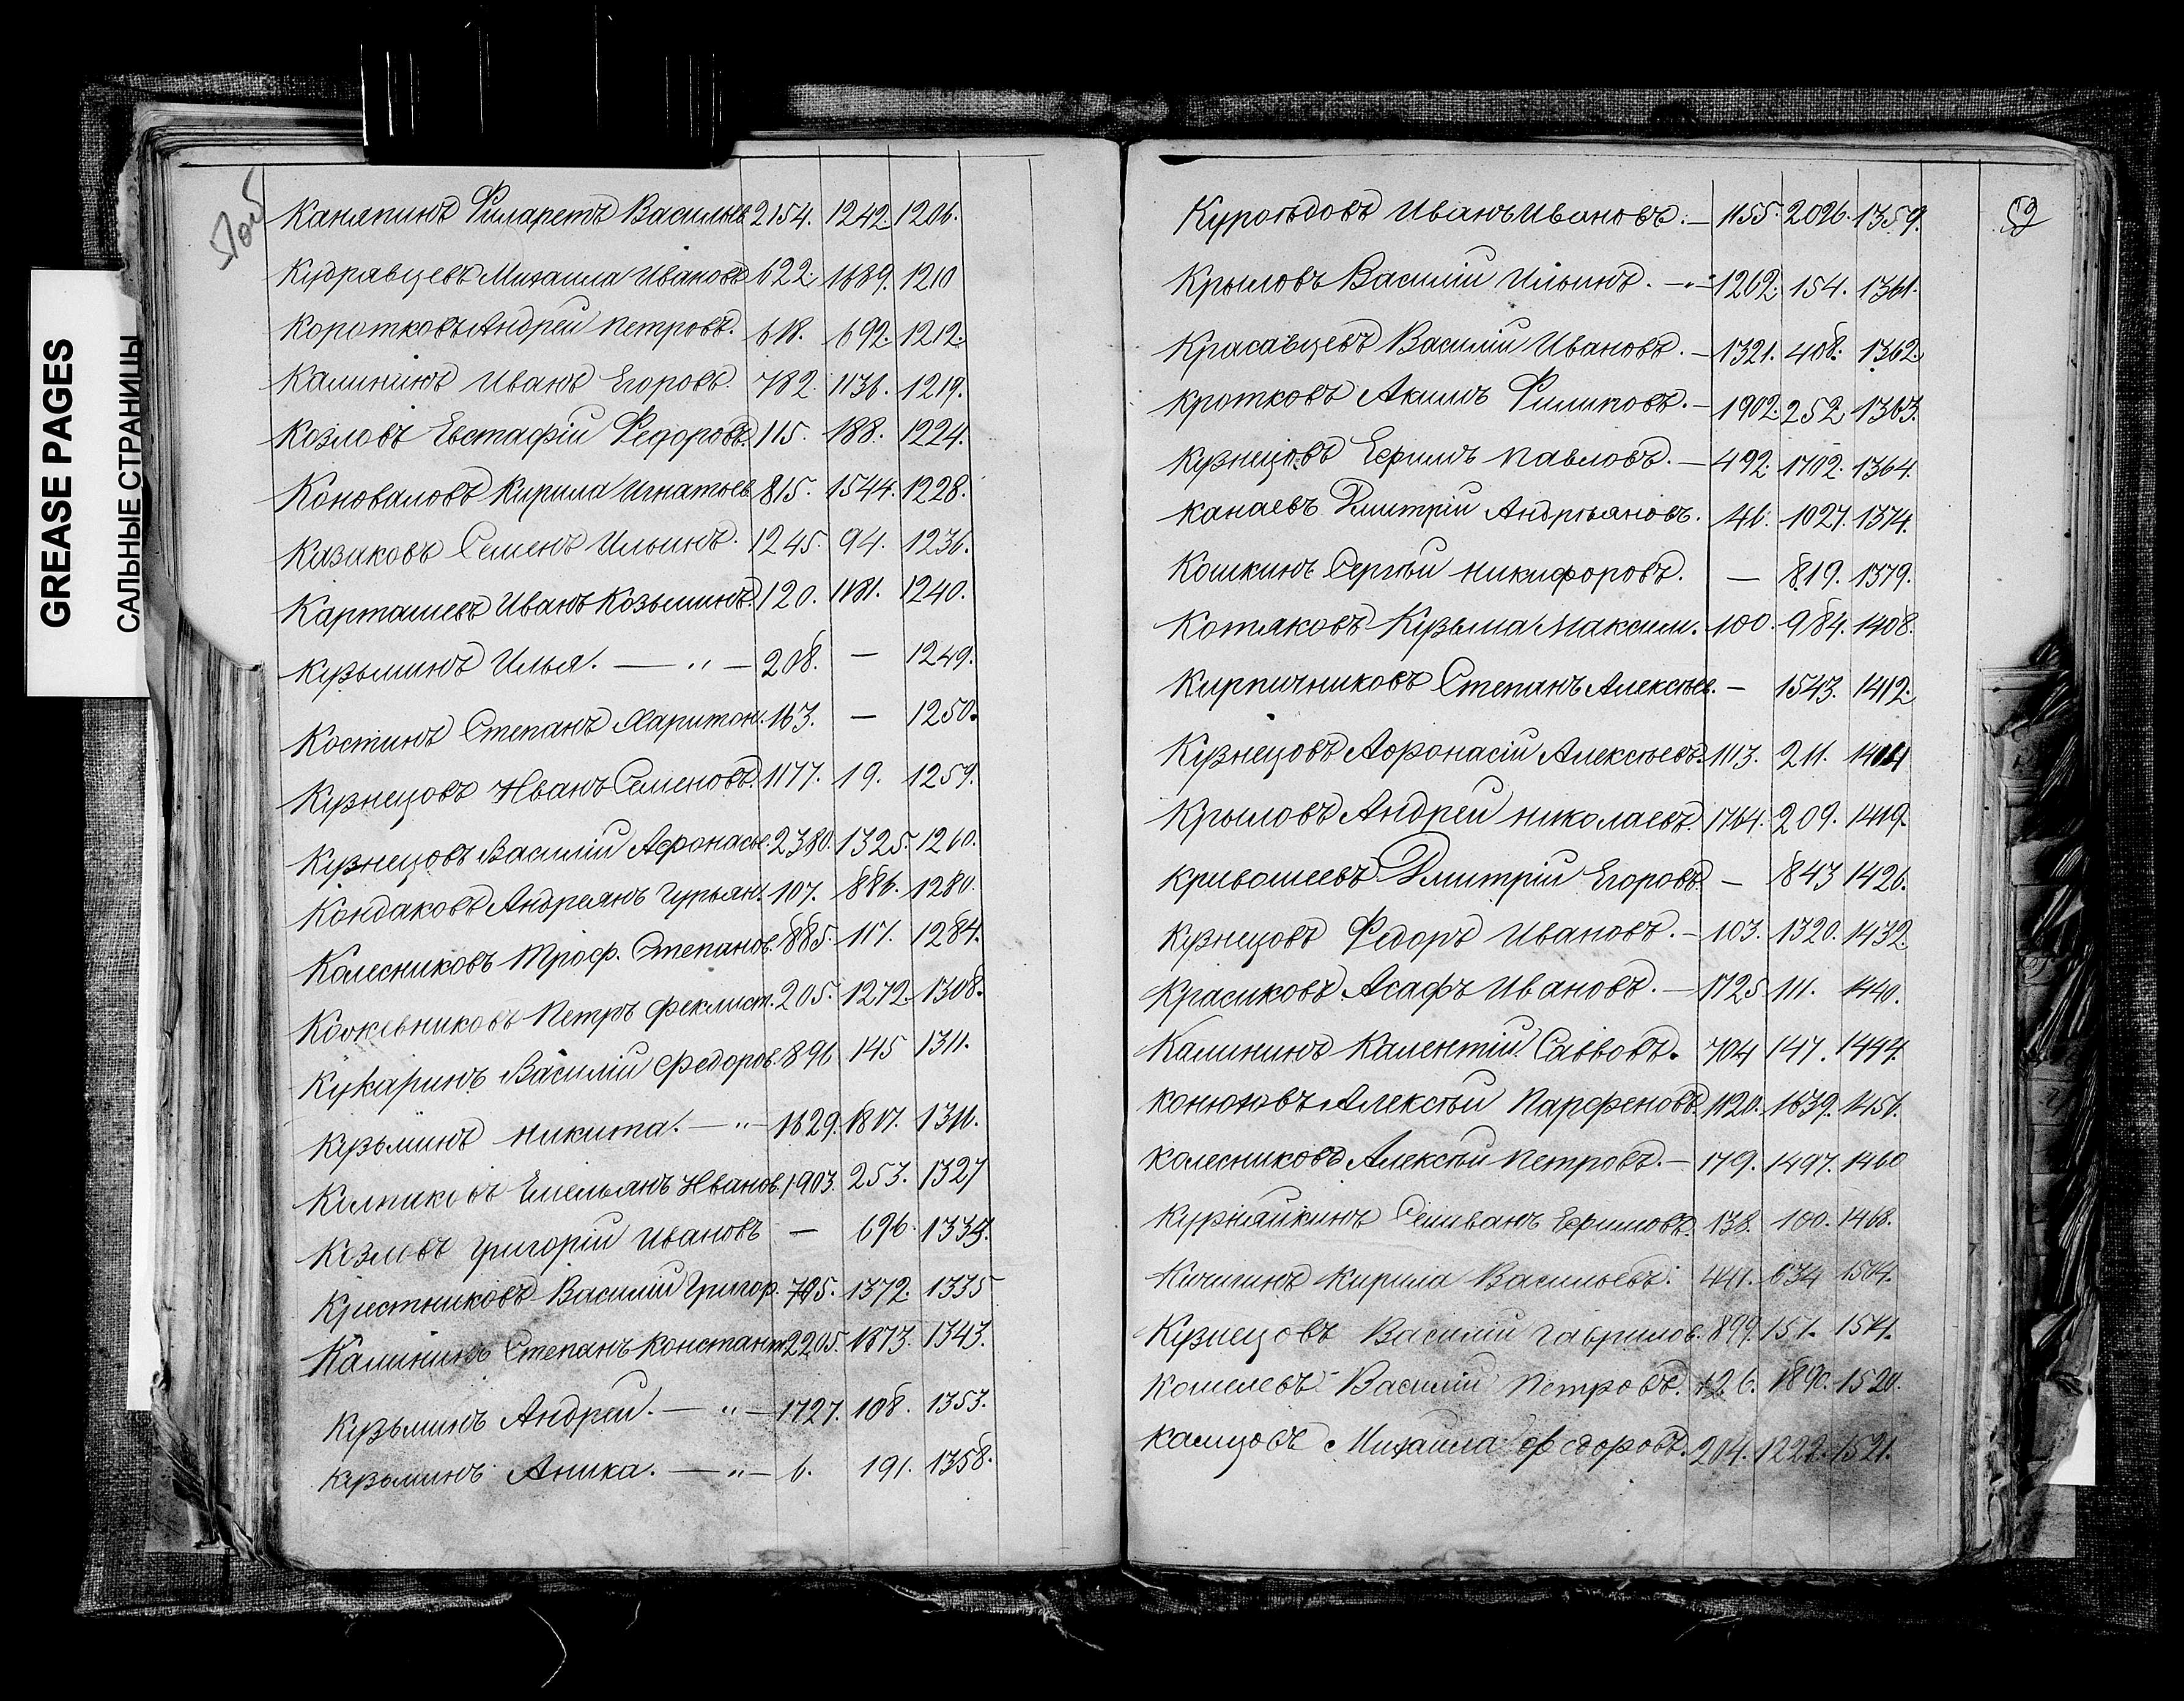 GREASE PAGES
САЛЬНЫЕ СТРАНИЦЫ
51об
Каняпинъ Филаретъ Васильев. 2154. 1242. 1206.
Кудрявцевъ Михаила Ивановъ 622. 1689. 1210
Коротковъ Андрей Петровъ. 618. 692. 1212.
Калининъ Иванъ Егоровъ. 782. 1136. 1219.
Козловъ Евстафій Федоровъ. 115. 188. 1224.
Коноваловъ Кирила Игнатьев. 815. 1544. 1228.
Казаковъ Семенъ Ильинъ. 1245. 94. 1236.
Карташевъ Иванъ Козьминъ. 120. 1181. 1240.
Кузьминъ Илья. — „ — 208. — 1249.
Костинъ Степанъ Харитон. 163. — 1250.
Кузнецовъ Иванъ Семеновъ. 1177. 19. 1259.
Кузнецовъ Василій Афонасье. 2380. 1325. 1260.
Кондаковъ Андреянъ Гурьян. 107. 886. 1280.
Колесниковъ Троф. Степанов. 885. 117. 1284.
Кожевниковъ Петръ Феклист. 205. 1272. 1308.
Кукаринъ Василій Федоров. 896 145 1311.
Кузьминъ Никита. — „ — 1829. 1817. 1311.
Колпаковъ Емельянъ Иванов. 1903. 253. 1327
Козловъ Григорій Ивановъ — 696. 1334.
Крестниковъ Василій Григор. 705. 1372. 1335
Калининъ Степанъ Констант. 2205. 1873. 1343.
Кузьминъ Андрей. — „ — 1727. 108. 1353.
Кузьминъ Аника. — „ — 6. 191. 1358.
52
Куроѣдовъ Иванъ Ивановъ. — 1155. 2026. 1359.
Крыловъ Василій Ильинъ. — 1262. 154. 1361.
Красавцевъ Василій Ивановъ. — 1321. 408. 1362.
Кротковъ Акимъ Филиповъ. — 1902. 252. 1363.
Кузнецовъ Ефимъ Павловъ. — 492. 1702. 1364.
Канаевъ Дмитрій Андрѣяновъ. 46. 1027. 1374.
Кошкинъ Сергѣй Никифоровъ. — 819. 1379.
Котяковъ Кузьма Максим. 100. 984. 1408.
Кирпичниковъ Степанъ Алексѣев. — 1543. 1412.
Кузнецовъ Афонасій Алексѣевъ. 1113. 211.
Крыловъ Андрей Николаевъ. 1764. 209. 1419.
Кривошеевъ Дмитрій Егоровъ. — 843 1426.
Кузнецовъ Федоръ Ивановъ. — 103. 1320. 1432.
Красиковъ Асафъ Ивановъ. — 1725 111. 1440.
Калининъ Калентій Саввовъ. 704 147. 1444.
Конюховъ Алексѣй Парфеновъ. 1120. 1639. 1451.
Колесниковъ Алексѣй Петровъ. — 179. 1497. 1460
Курняйкинъ Селиванъ Ефимовъ. 138. 100. 1468.
Кичигинъ Кирила Васильевъ. 441. 634 1504.
Кузнецовъ Василій Гаврилов. 899. 151. 1511.
Кошелевъ Василій Петровъ. 126. 1890. 1520.
Камцовъ Михаила Федоровъ. 204. 1222. 1521.